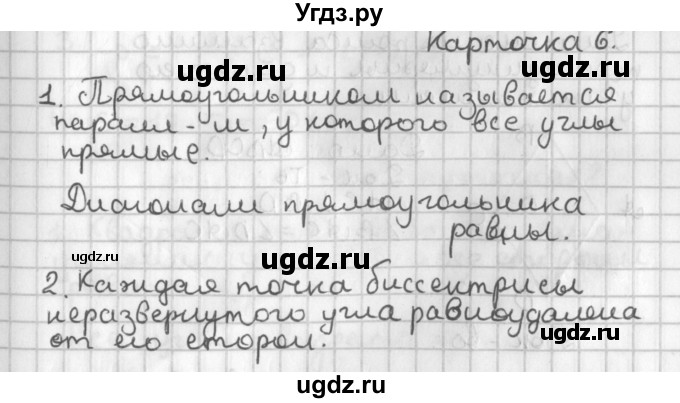 Угдз.ру
Карточка 6.
ugdz.ru
1. Прямоугольником называется
ugdz.ru
паралл-м, у которого все углы
прямые.
ugdz.ru
Диагонали прямоугольника
равны.
ugdz.ru
ugdz.ru
2. Каждая точка биссектрисы
неразвернутого угла равноудалена
ugdz.ru
от его сторон.
ugdz.ru
ugdz.ru